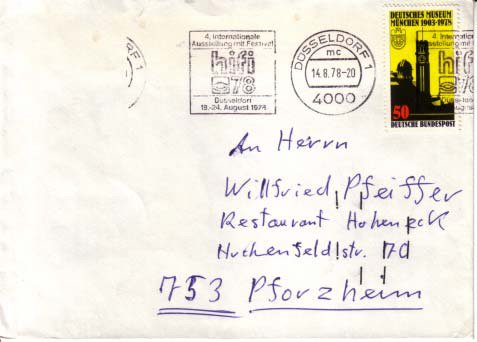 RF 1
4. Internationale
Ausstellung mit Festival
hifi
78
Düsseldorf
18.-24. August 1978
DÜSSELDORF 1
mc
14.8.78-20
4000
DEUTSCHES MUSEUM
MÜNCHEN 1903-1978
50
DEUTSCHE BUNDESPOST
4. Internation
Ausstellung mit
hifi
78
An Herrn
Willfried Pfeiffer
Restaurant Hoheneck
Huchenfeldstr. 70
753 Pforzheim